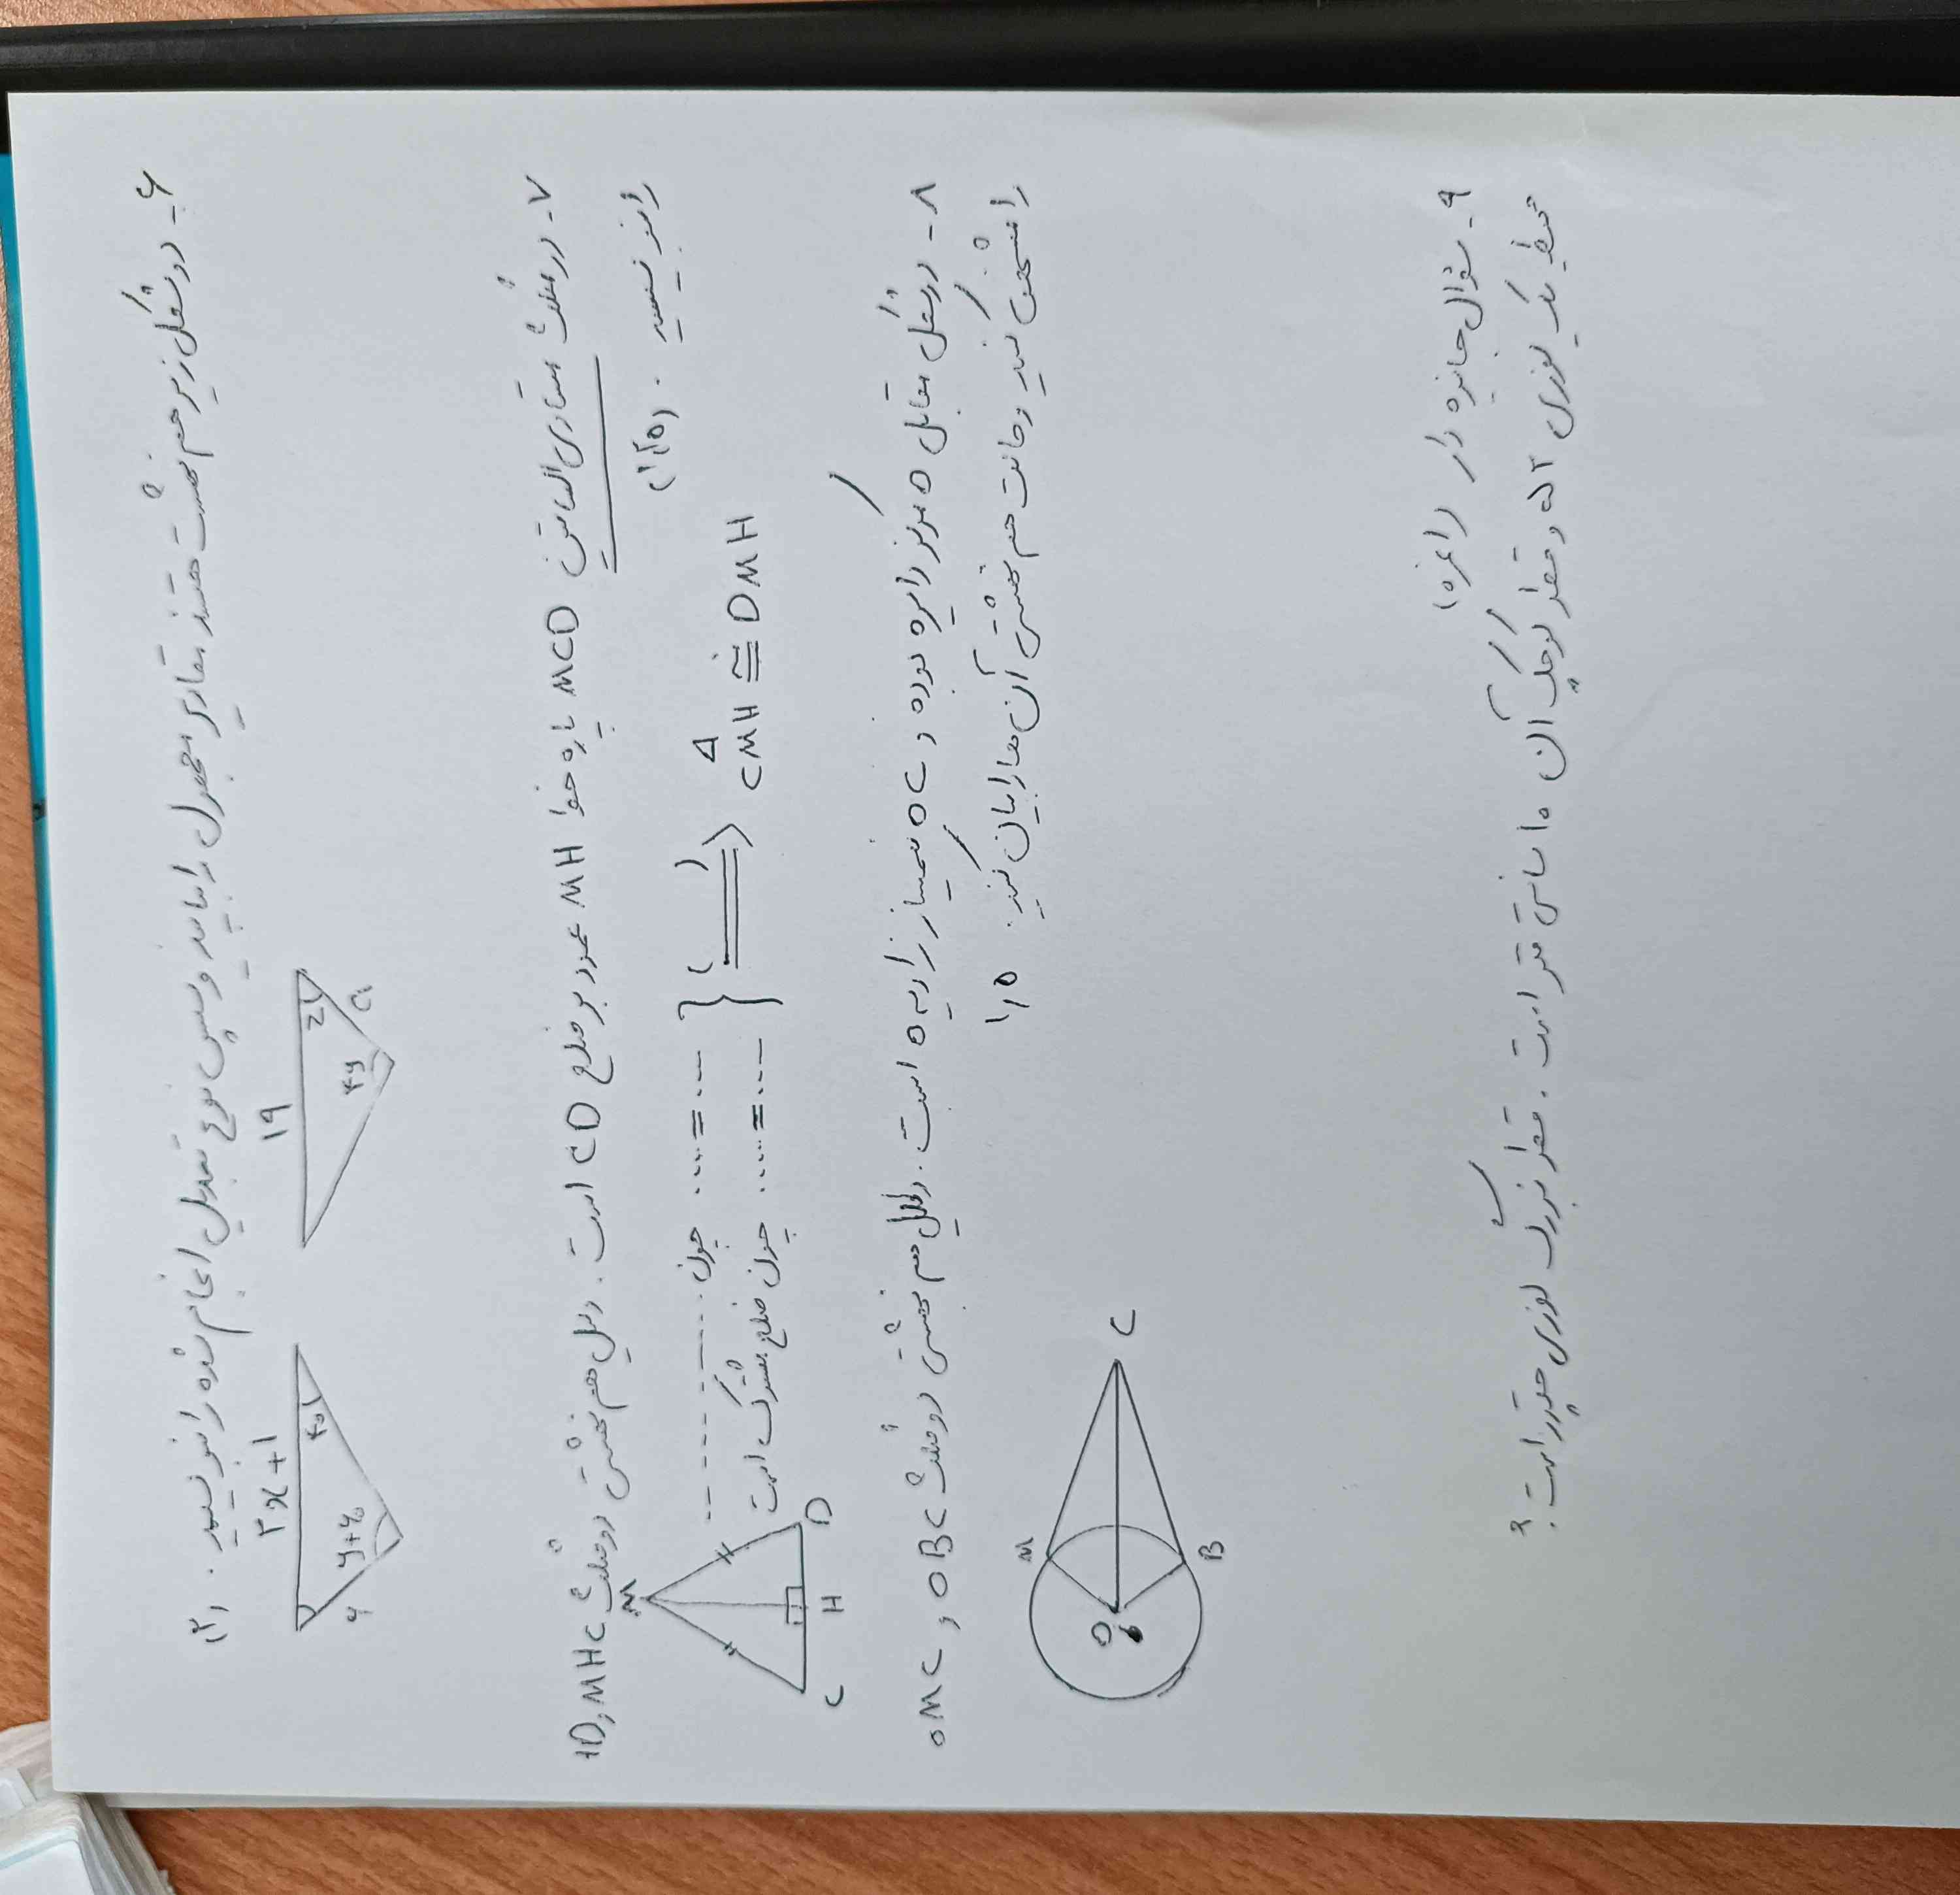 ۶- دو شکل زیر هم نهشت هستند مقادیر مجهول را بیابید و سپس نوع تبدیل انجام شده را بنویسید. (۲)
۳x+1
۴۰
y+۶۰
۶
۱۹
۲z
۴y
a
۷- در مثلث متساوی الساقین MCD پاره خط MH عمود بر ضلع CD است. دلیل هم نهشتی دو مثلث HD, MHC
را بنویسید. (۱٫۲۵)
M
C
H
D
چون ..... = ....
چون ضلع مشترک است ..... = ....
} ⟹ ( ) CMH ≅ DMH
۸- در شکل مقابل O مرکز دایره بوده و OC نیمساز زاویه O است. دلایل هم نهشتی دو مثلث OBC و OMC
را مشخص کنید و حالت هم نهشتی آن ها را بیان کنید. ۱٫۵
M
O
B
C
۹- سؤال جایزه دار (۱ نمره)
محیط یک لوزی ۵۲ و قطر کوچک آن ۱۰ سانتی متر است. قطر بزرگ لوزی چقدر است؟